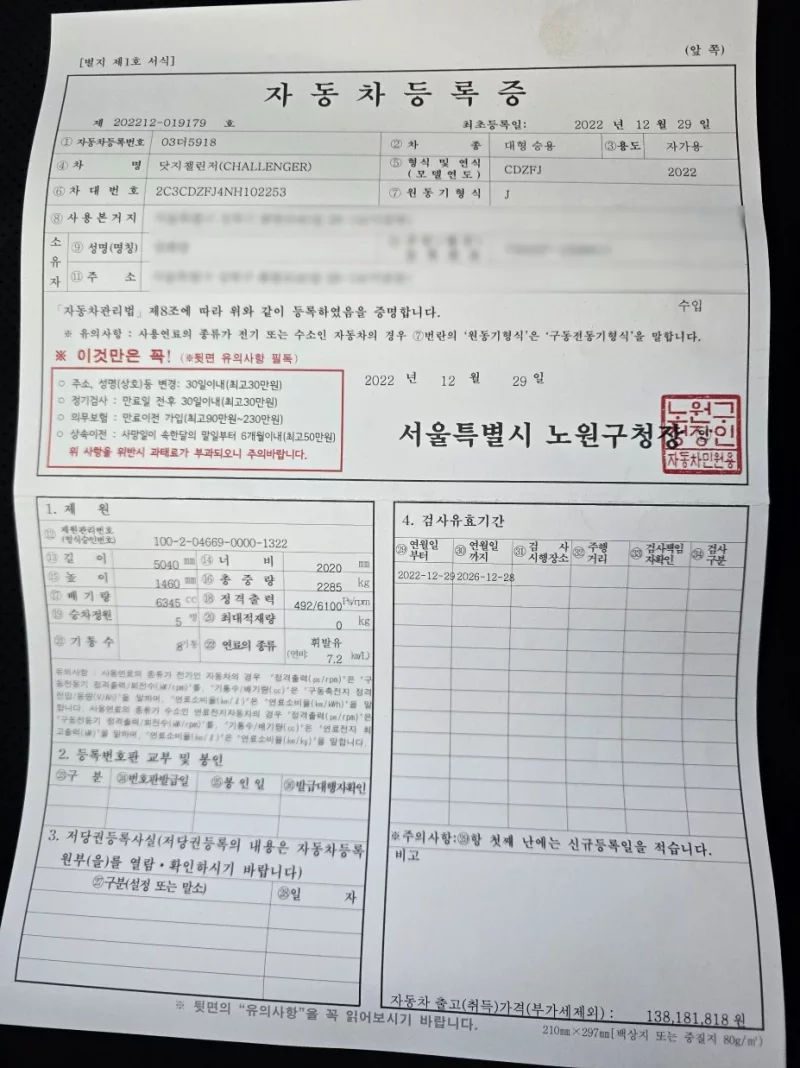 [별지 제1호 서식]
(앞 쪽)
자 동 차 등 록 증
제 202212-019179 호
최초등록일: 2022 년 12 월 29 일
① 자동차등록번호 03더5918 ② 차 종 대형 승용 ③용도 자가용
④ 차 명 닷지챌린저(CHALLENGER) ⑤ 형식 및 연식 (모델연도) CDZFJ 2022
⑥ 차 대 번 호 2C3CDZFJ4NH102253 ⑦ 원 동 기 형 식 J
⑧ 사 용 본 거 지
소유자
⑨ 성명(명칭)
⑪ 주 소
「자동차관리법」 제8조에 따라 위와 같이 등록하였음을 증명합니다.
수입
※ 유의사항 : 사용연료의 종류가 전기 또는 수소인 자동차의 경우 ⑦번란의 '원동기형식'은 '구동전동기형식'을 말합니다.
※ 이것만은 꼭! (※뒷면 유의사항 필독)
○ 주소, 성명(상호)등 변경: 30일이내(최고30만원)
○ 정기검사 : 만료일 전·후 30일이내(최고30만원)
○ 의무보험 : 만료이전 가입(최고90만원~230만원)
○ 상속이전 : 사망일이 속한달의 말일부터 6개월이내(최고50만원)
위 사항을 위반시 과태료가 부과되오니 주의바랍니다.
2022 년 12 월 29 일
서울특별시 노원구청장
노원구
청장인
자동차민원용
1. 제 원
⑫ 제원관리번호 (형식승인번호) 100-2-04669-0000-1322
⑬ 길 이 5040 mm ⑭ 너 비 2020 mm
⑮ 높 이 1460 mm ⑯ 총 중 량 2285 kg
⑰ 배 기 량 6345 cc ⑱ 정 격 출 력 492/6100 Ps/rpm
⑲ 승차정원 5 명 ⑳ 최대적재량 0 kg
㉑ 기 통 수 8기통 ㉒ 연료의 종류 휘발유 (연비: 7.2 km/L)
유의사항 : 사용연료의 종류가 전기인 자동차의 경우 "정격출력(ps/rpm)"은 "구
동전동기 정격출력/회전수(kW/rpm)"를, "기통수/배기량(cc)"은 "구동축전지 정격
전압/용량(V/Ah)"을 말하며, "연료소비율(km/ℓ)"은 "연료소비율(km/kWh)"을 말
합니다. 사용연료의 종류가 수소인 연료전지자동차의 경우 "정격출력(ps/rpm)"은
"구동전동기 정격출력/회전수(kW/rpm)"를, "기통수/배기량(cc)"은 "연료전지 최
고출력(kW)"을 말하며, "연료소비율(km/ℓ)"은 "연료소비율(km/kg)"을 말합니다.
2. 등록번호판 교부 및 봉인
㉓구 분 ㉔번호판발급일 ㉕봉 인 일 ㉖발급대행자확인
3. 저당권등록사실(저당권등록의 내용은 자동차등록
원부(을)를 열람·확인하시기 바랍니다)
㉗구분(설정 또는 말소) ㉘일 자
4. 검사유효기간
㉙ 연월일 부터 ㉚ 연월일 까지 ㉛ 검 사 시행장소 ㉜ 주행 거리 ㉝ 검사책임 자확인 ㉞ 검사 구분
2022-12-29 2026-12-28
※주의사항:㉙항 첫째 난에는 신규등록일을 적습니다.
비고
자동차 출고(취득)가격(부가세제외) : 138,181,818 원
※ 뒷면의 "유의사항"을 꼭 읽어보시기 바랍니다.
210mm×297mm[백상지 또는 중질지 80g/㎡]